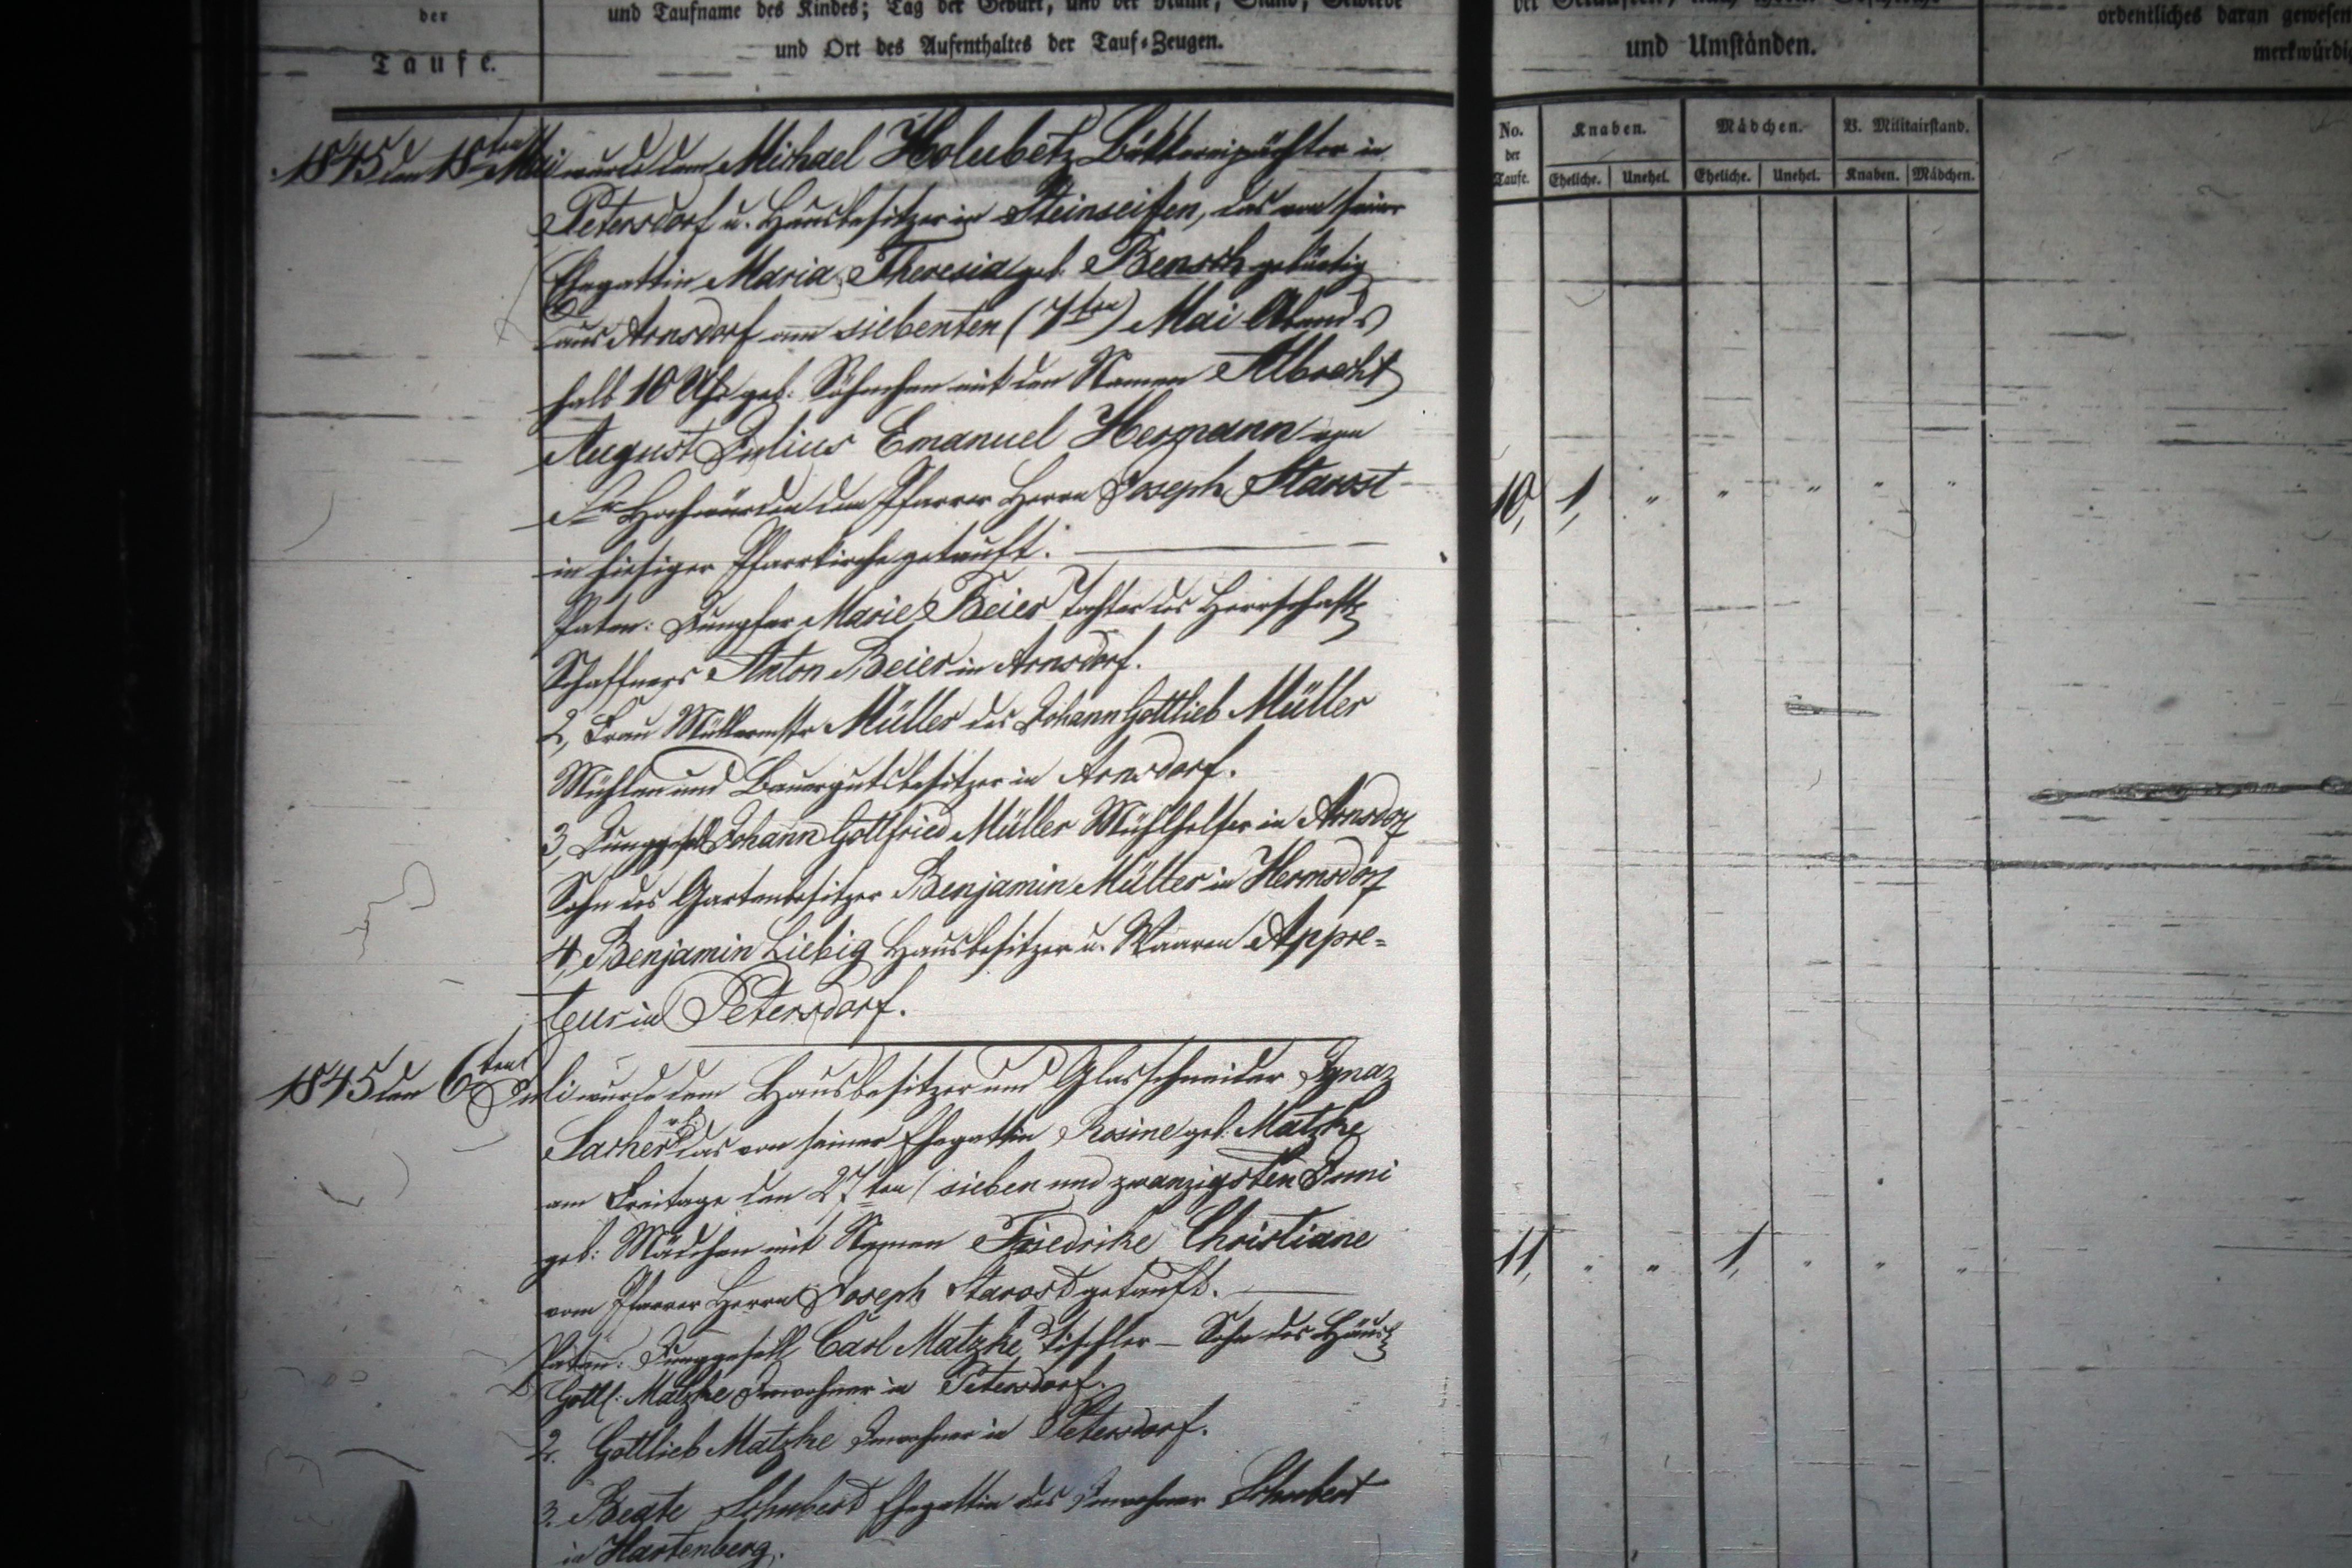 der
Taufe.
und Taufname des Kindes; Tag der Geburt, und der Name, Stand, Gewerbe
und Ort des Aufenthaltes der Tauf-Zeugen.
und Umständen.
ordentliches daran gewesen
merkwürdig
No. der Taufe.
Knaben. Mädchen. V. Militairstand.
Eheliche. Unehel. Eheliche. Unehel. Knaben. Mädchen.
1845 den 18ten Mai wurde dem Michael Holubetz Bäkkereipächter in
Petersdorf u. Hausbesitzer in Steinseifen, das von seiner
Ehegattin Maria Theresia geb. Bensch gebürtig
aus Arnsdorf am siebenten (7ten) Mai Abends
halb 10 Uhr geb. Söhnchen mit den Namen Albrecht
August Julius Emanuel Hermann von
Sr Hochwürden dem Pfarrer Herrn Joseph Starost
in hiesiger Pfarrkirche getauft.
10, 1, " " " " "
Paten: Jungfer Marie Beier Tochter des Herrschafts
Schaffners Anton Beier in Arnsdorf.
2, Frau Müllermstr Müller des Johann Gottlieb Müller
Mühlen und Bauergutsbesitzer in Arnsdorf.
3, Junggesell Johann Gottfried Müller Mühlhelfer in Arnsdorf
Sohn des Gartenbesitzer Benjamin Müller in Hermsdorf
4, Benjamin Liebig Hausbesitzer u. Waaren Appre=
teur in Petersdorf.
1845 den 6ten Juli wurde dem Hausbesitzer und Glasschneider Ignaz
Sacher das von seiner Ehegattin Rosine geb. Matzke
am Freitage den 27ten / sieben und zwanzigsten Juni
geb: Mädchen mit Namen Friedrike Christiane
vom Pfarrer Herrn Joseph Starost getauft.
11, " " 1, " " "
Paten: Junggesell Carl Matzke Tischler - Sohn des
Gottl: Matzke Inwohner in Petersdorf.
2. Gottlieb Matzke Inwohner in Petersdorf.
3. Beate Schubert Ehegattin des Inwohner Schubert
in Hartenberg.